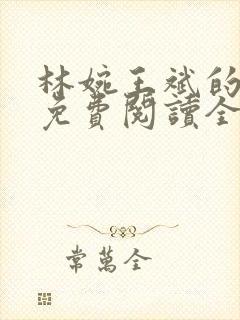 林婉王斌的
免費閱讀全
常萬全